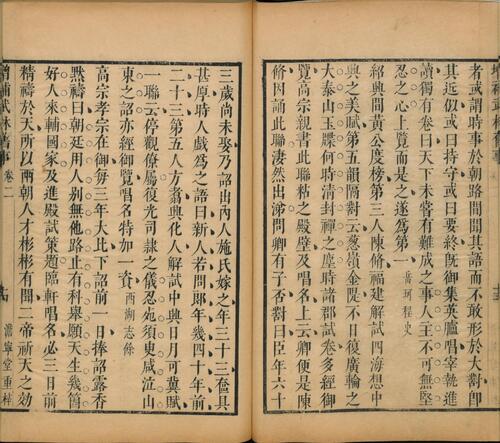 者或謂時事於朝路聞聞其語而不敢形於大對卽
其近似或曰持守或曰要終旣御集英臚唱宰執進
讀獨有卷曰天下未嘗有難成之事人主不可無堅
忍之心上覽而是之遂爲第一 岳珂桯史
紹興間黃公度榜第三人陳脩福建解試四海想中
興之美賦第五韻隔對云蔥嶺金隄不日復廣輪之
大泰山玉牒何時淸封禪之塵時諸郡試卷多經御
覽高宗親書此聯粘之殿壁及唱名上云卿便是陳
脩因誦此聯淒然出涕問卿有子否對曰臣年六十
三歲尚未娶乃詔出內人施氏嫁之年三十三奩具
甚厚時人戲爲之語曰新人若問郎年幾四十年前
二十三第五人方翥興化人解試中興日月可冀賦
一聯云停觀僚屬復光司隸之儀忍死須臾咸泣山
東之詔亦經御覽唱名特加一資 西湖志餘
高宗孝宗在御每三年大比下詔前一日捧詔露香
默禱曰朝廷用人别無他路止有科舉願天生幾箇
好人來輔國家及進殿試策題臨軒唱名必三日前
精禱於天所以兩朝人才彬彬有聞二帝祈天之効
增補武林舊事 卷二
澹寧堂重梓